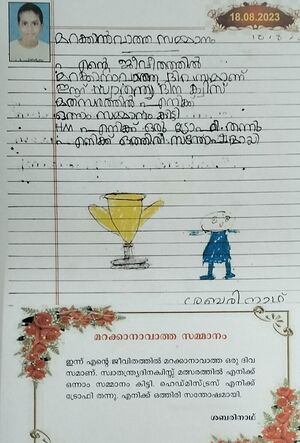 18.08.2023
മറക്കിൻവാത്ത സമ്മാനം
എൻ്റെ ജീവിതത്തിൽ
ദിവസമാണ്
ഇന്ന് സ്വാതന്ത്ര്യ ദിന ക്വിസ്
മത്സരത്തിൽ എനിക്ക്
ഒന്നാം സമ്മാനം കിട്ടി
HM എനിക്ക് ഒരു ട്രോഫി തന്നു
എനിക്ക് ഒത്തിരി സന്തോഷമായി
ശബരിനാഥ്
മറക്കാനാവാത്ത സമ്മാനം
ഇന്ന് എന്റെ ജീവിതത്തിൽ മറക്കാനാവാത്ത ഒരു ദിവ
സമാണ്. സ്വാതന്ത്ര്യദിനക്വിസ്സ് മത്സരത്തിൽ എനിക്ക്
ഒന്നാം സമ്മാനം കിട്ടി. ഹെഡ്മിസ്ട്രസ് എനിക്ക്
ട്രോഫി തന്നു. എനിക്ക് ഒത്തിരി സന്തോഷമായി.
ശബരിനാഥ്